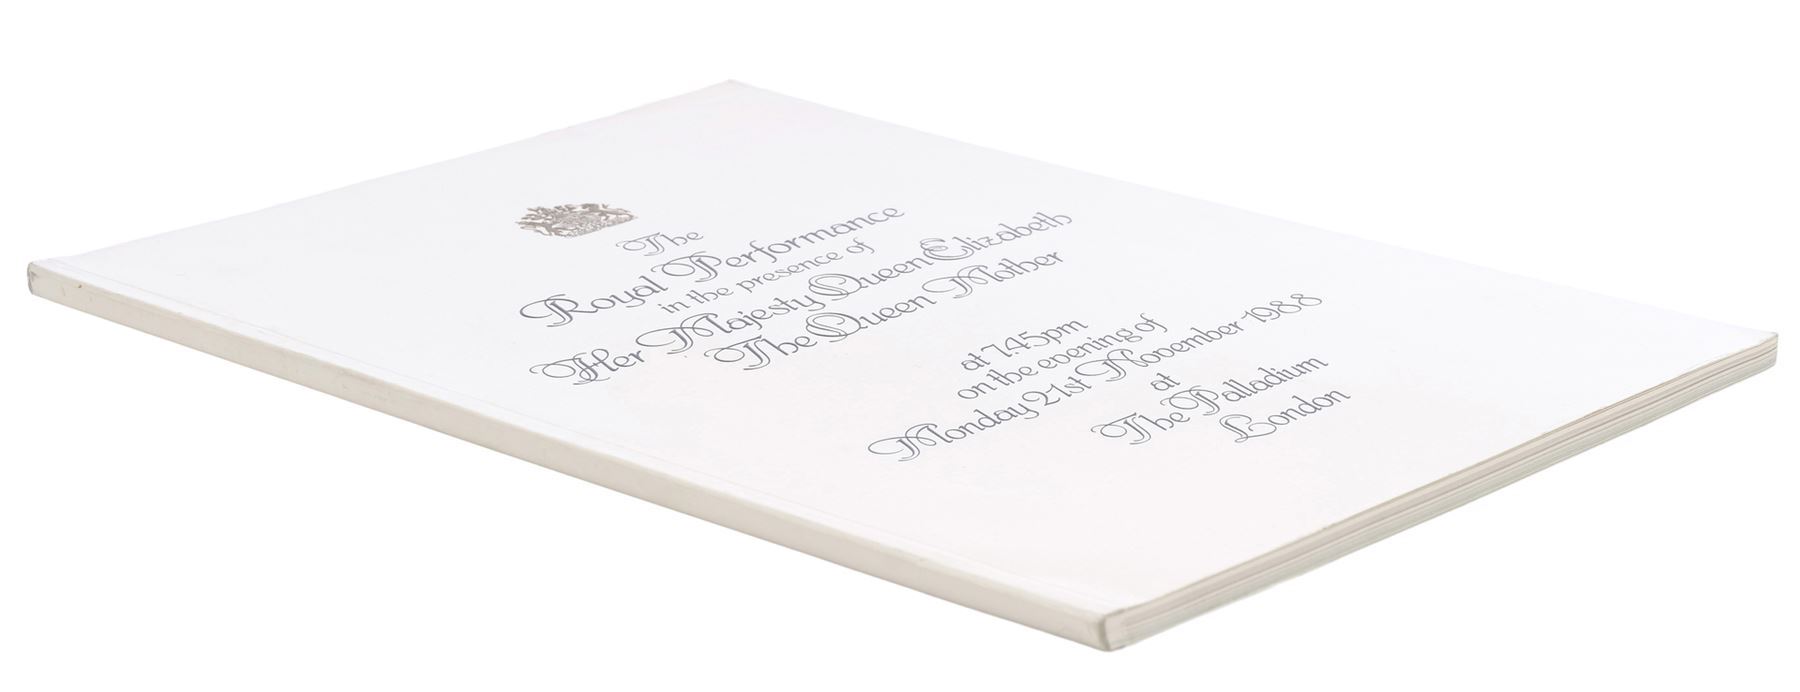 The
Royal Performance
in the presence of
Her Majesty Queen Elizabeth
The Queen Mother
at 7.45pm
on the evening of
Monday 21st November 1988
at
The Palladium
London